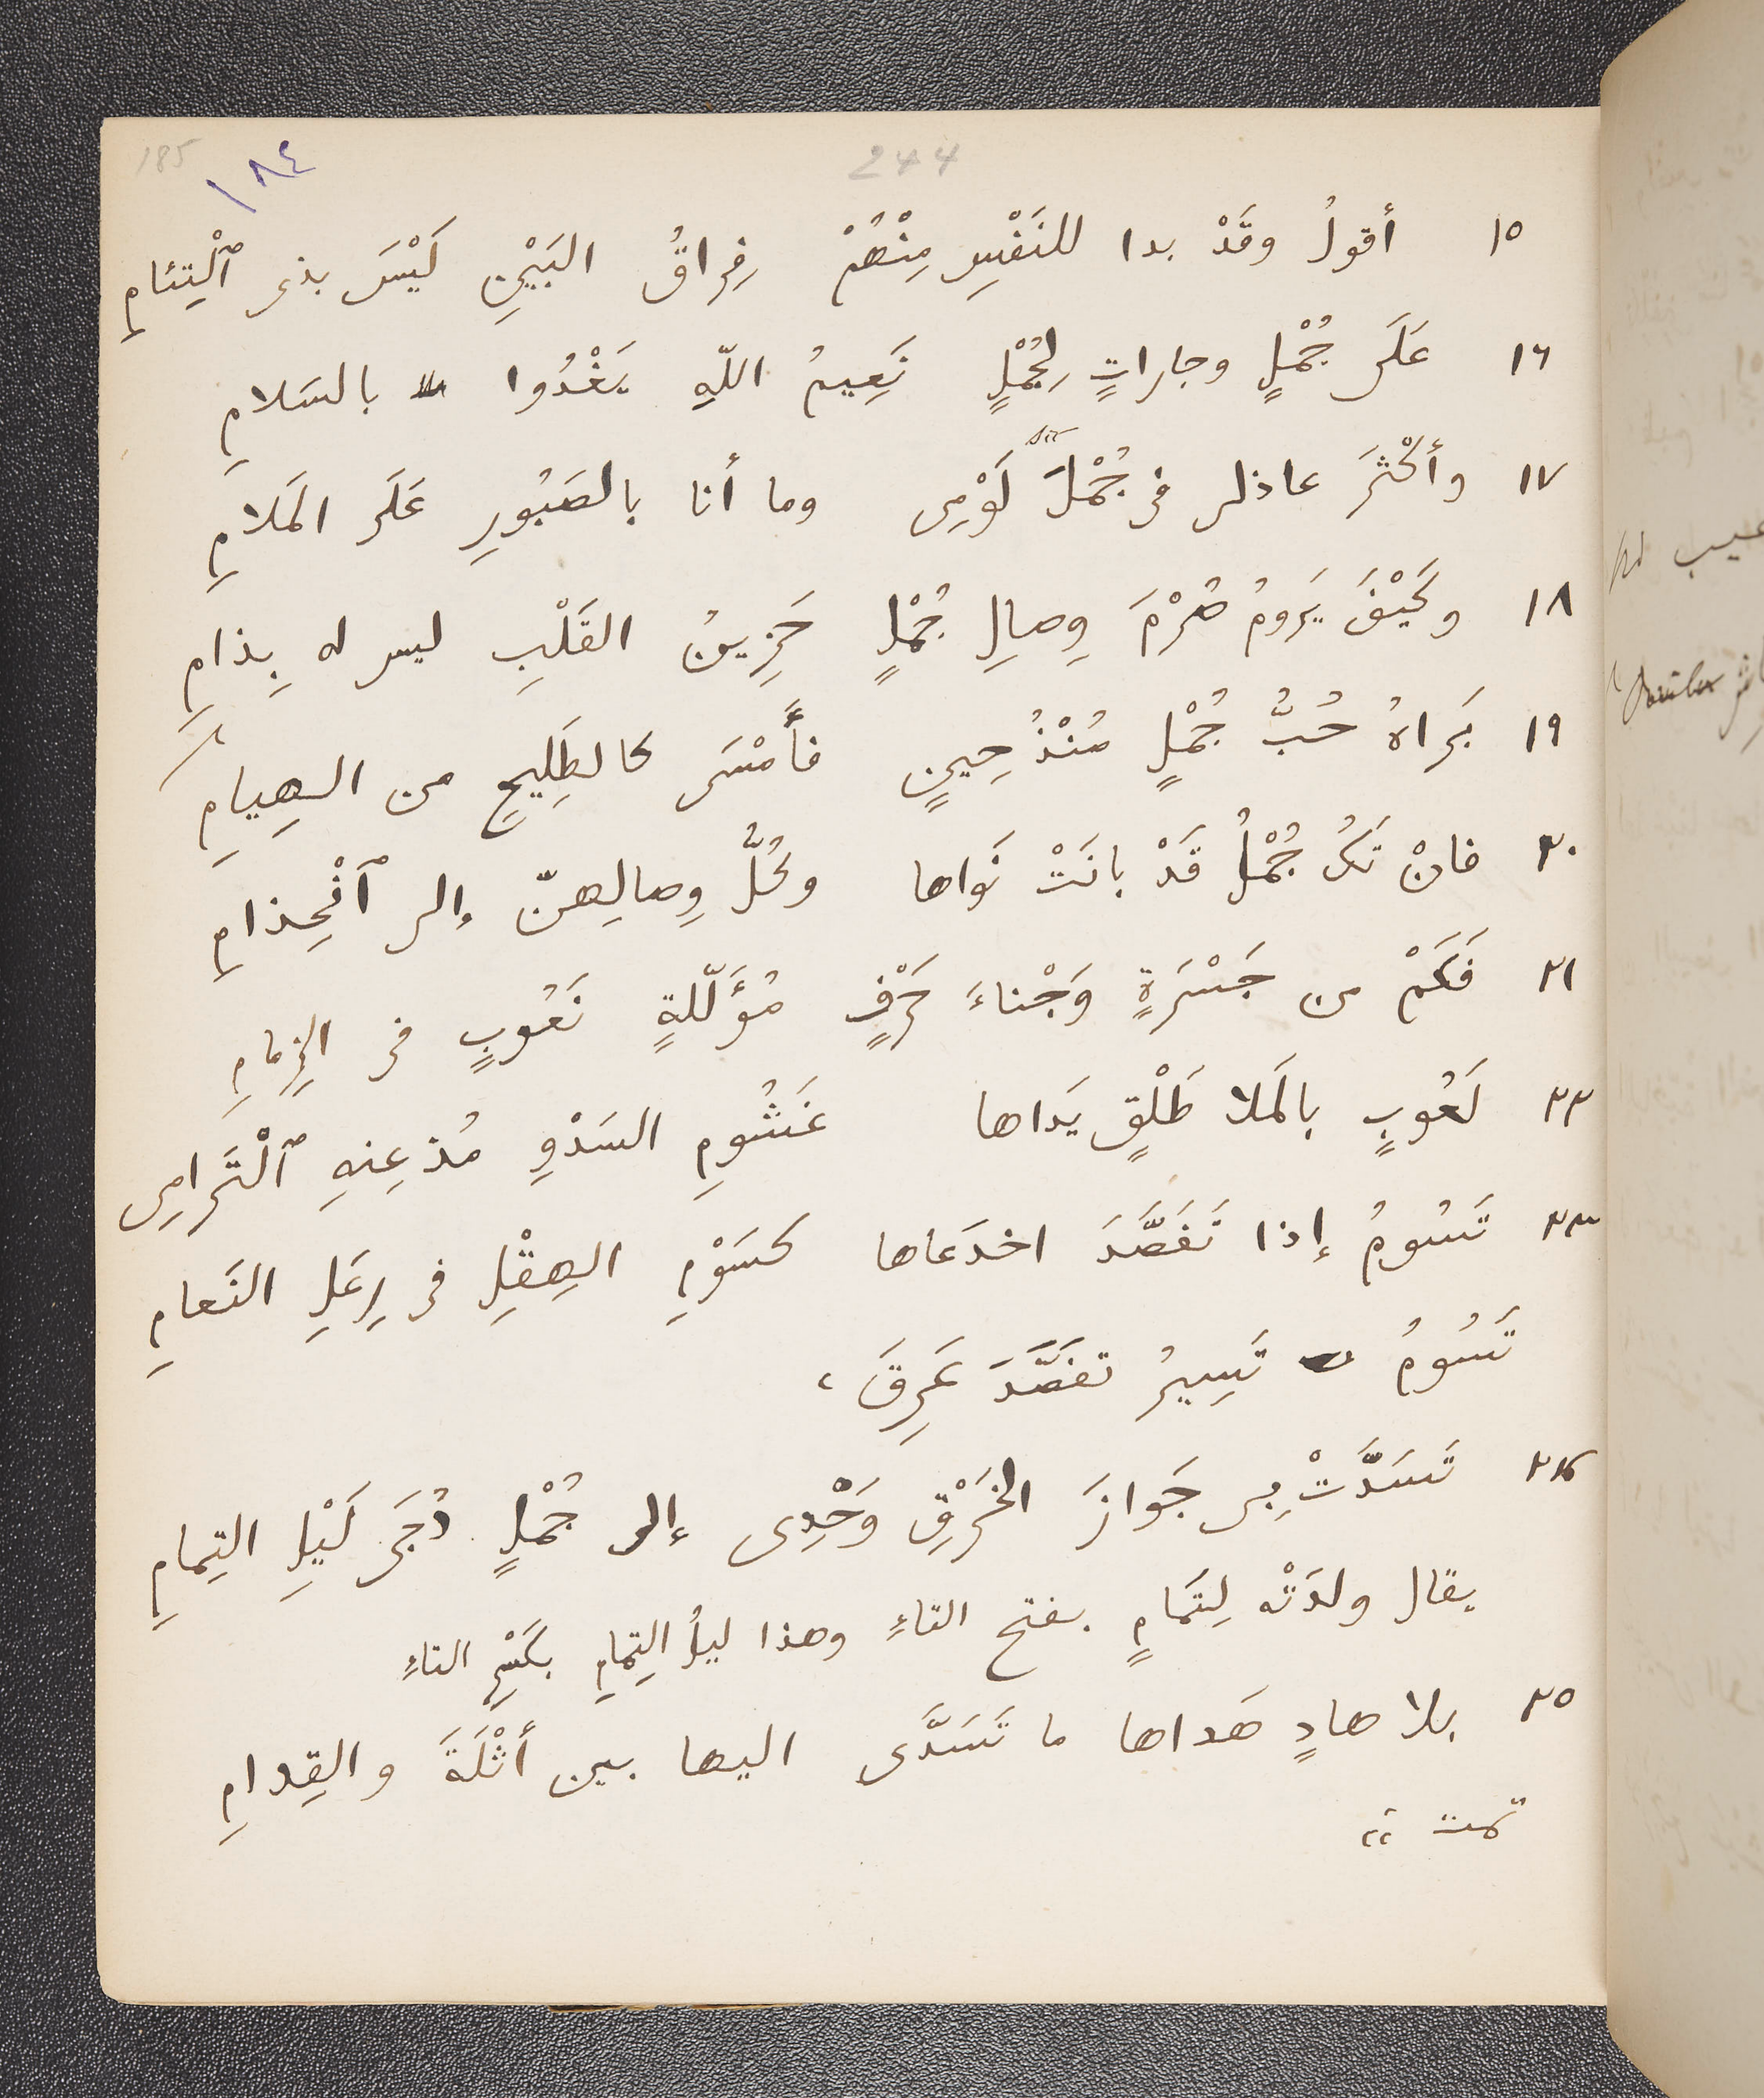 185 ١٨٤ 244
١٥ أقولُ وقَدْ بدا للنَفْسِ مِنْهُمْ فِراقُ البَيْنِ لَيْسَ بذى ٱلْتِئامِ
١٦ عَلَى جُمْلٍ وجاراتٍ لِجُمْلٍ نَعِيمُ اللّهِ يَغْدُوا بالسَلامِ
١٧ وأكْثَرَ عاذلى فى جُمْلَ لَوْمِى وما أنا بالصَبُورِ عَلَى المَلامِ
sic
١٨ وكَيْفَ يَرومُ صُرْمَ وِصالِ جُمْلٍ حَزِينُ القَلْبِ ليس له بِذامِ
١٩ بَراهُ حُبُّ جُمْلٍ مُنْذُ حِينٍ فأَمْسَى كالطَلِيحِ من الهِيامِ
٢٠ فانْ تَكُ جُمْلُ قَدْ بانَتْ نَواها وكُلُّ وِصالِهنّ إلى ٱنْجِذامِ
٢١ فَكَمْ من جَسْرَةٍ وَجْناءَ حَرْفٍ مُؤَلّلةٍ نَعُوبٍ فى الزِمامِ
٢٢ لَعُوبٍ بالمَلا طَلْقٍ يَداها غَشُومِ السَدْوِ مُذعِنهِ ٱلْتَّرامِى
٢٣ تَسُومُ إذا تَفَصَّدَ اخدَعاها كسَوْمِ الهِقْلِ فى رِعَلِ النَعامِ
تَسُومُ تَسِيرُ تفَصَّدَ عَرِقَ ،
٢٤ تَسَدَّتْ بِى جَوازَ الخَرْقِ وَحْدِى إلى جُمْلٍ دُجَى لَيْلِ التِمامِ
يقال ولدَتْه لِتَمامٍ بفتح التاءِ وهذا ليلُ التِمامِ بكَسْرِ التاءِ
٢٥ بلا هادٍ هَداها ما تَسَدَّى اليها بين أثْلَةَ والقِدامِ
تمت ،،